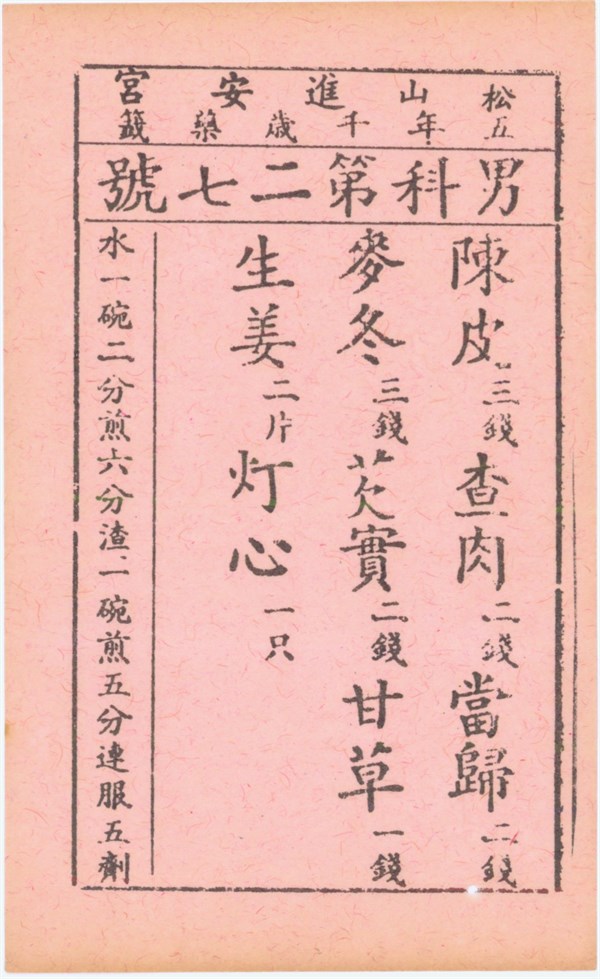 松山進安宮
五年千歲藥籤
男科第二七號
陳皮三錢 查肉二錢 當歸二錢
麥冬三錢 芡實二錢 甘草一錢
生姜二片 灯心一只
水一碗二分煎六分渣一碗煎五分連服五劑